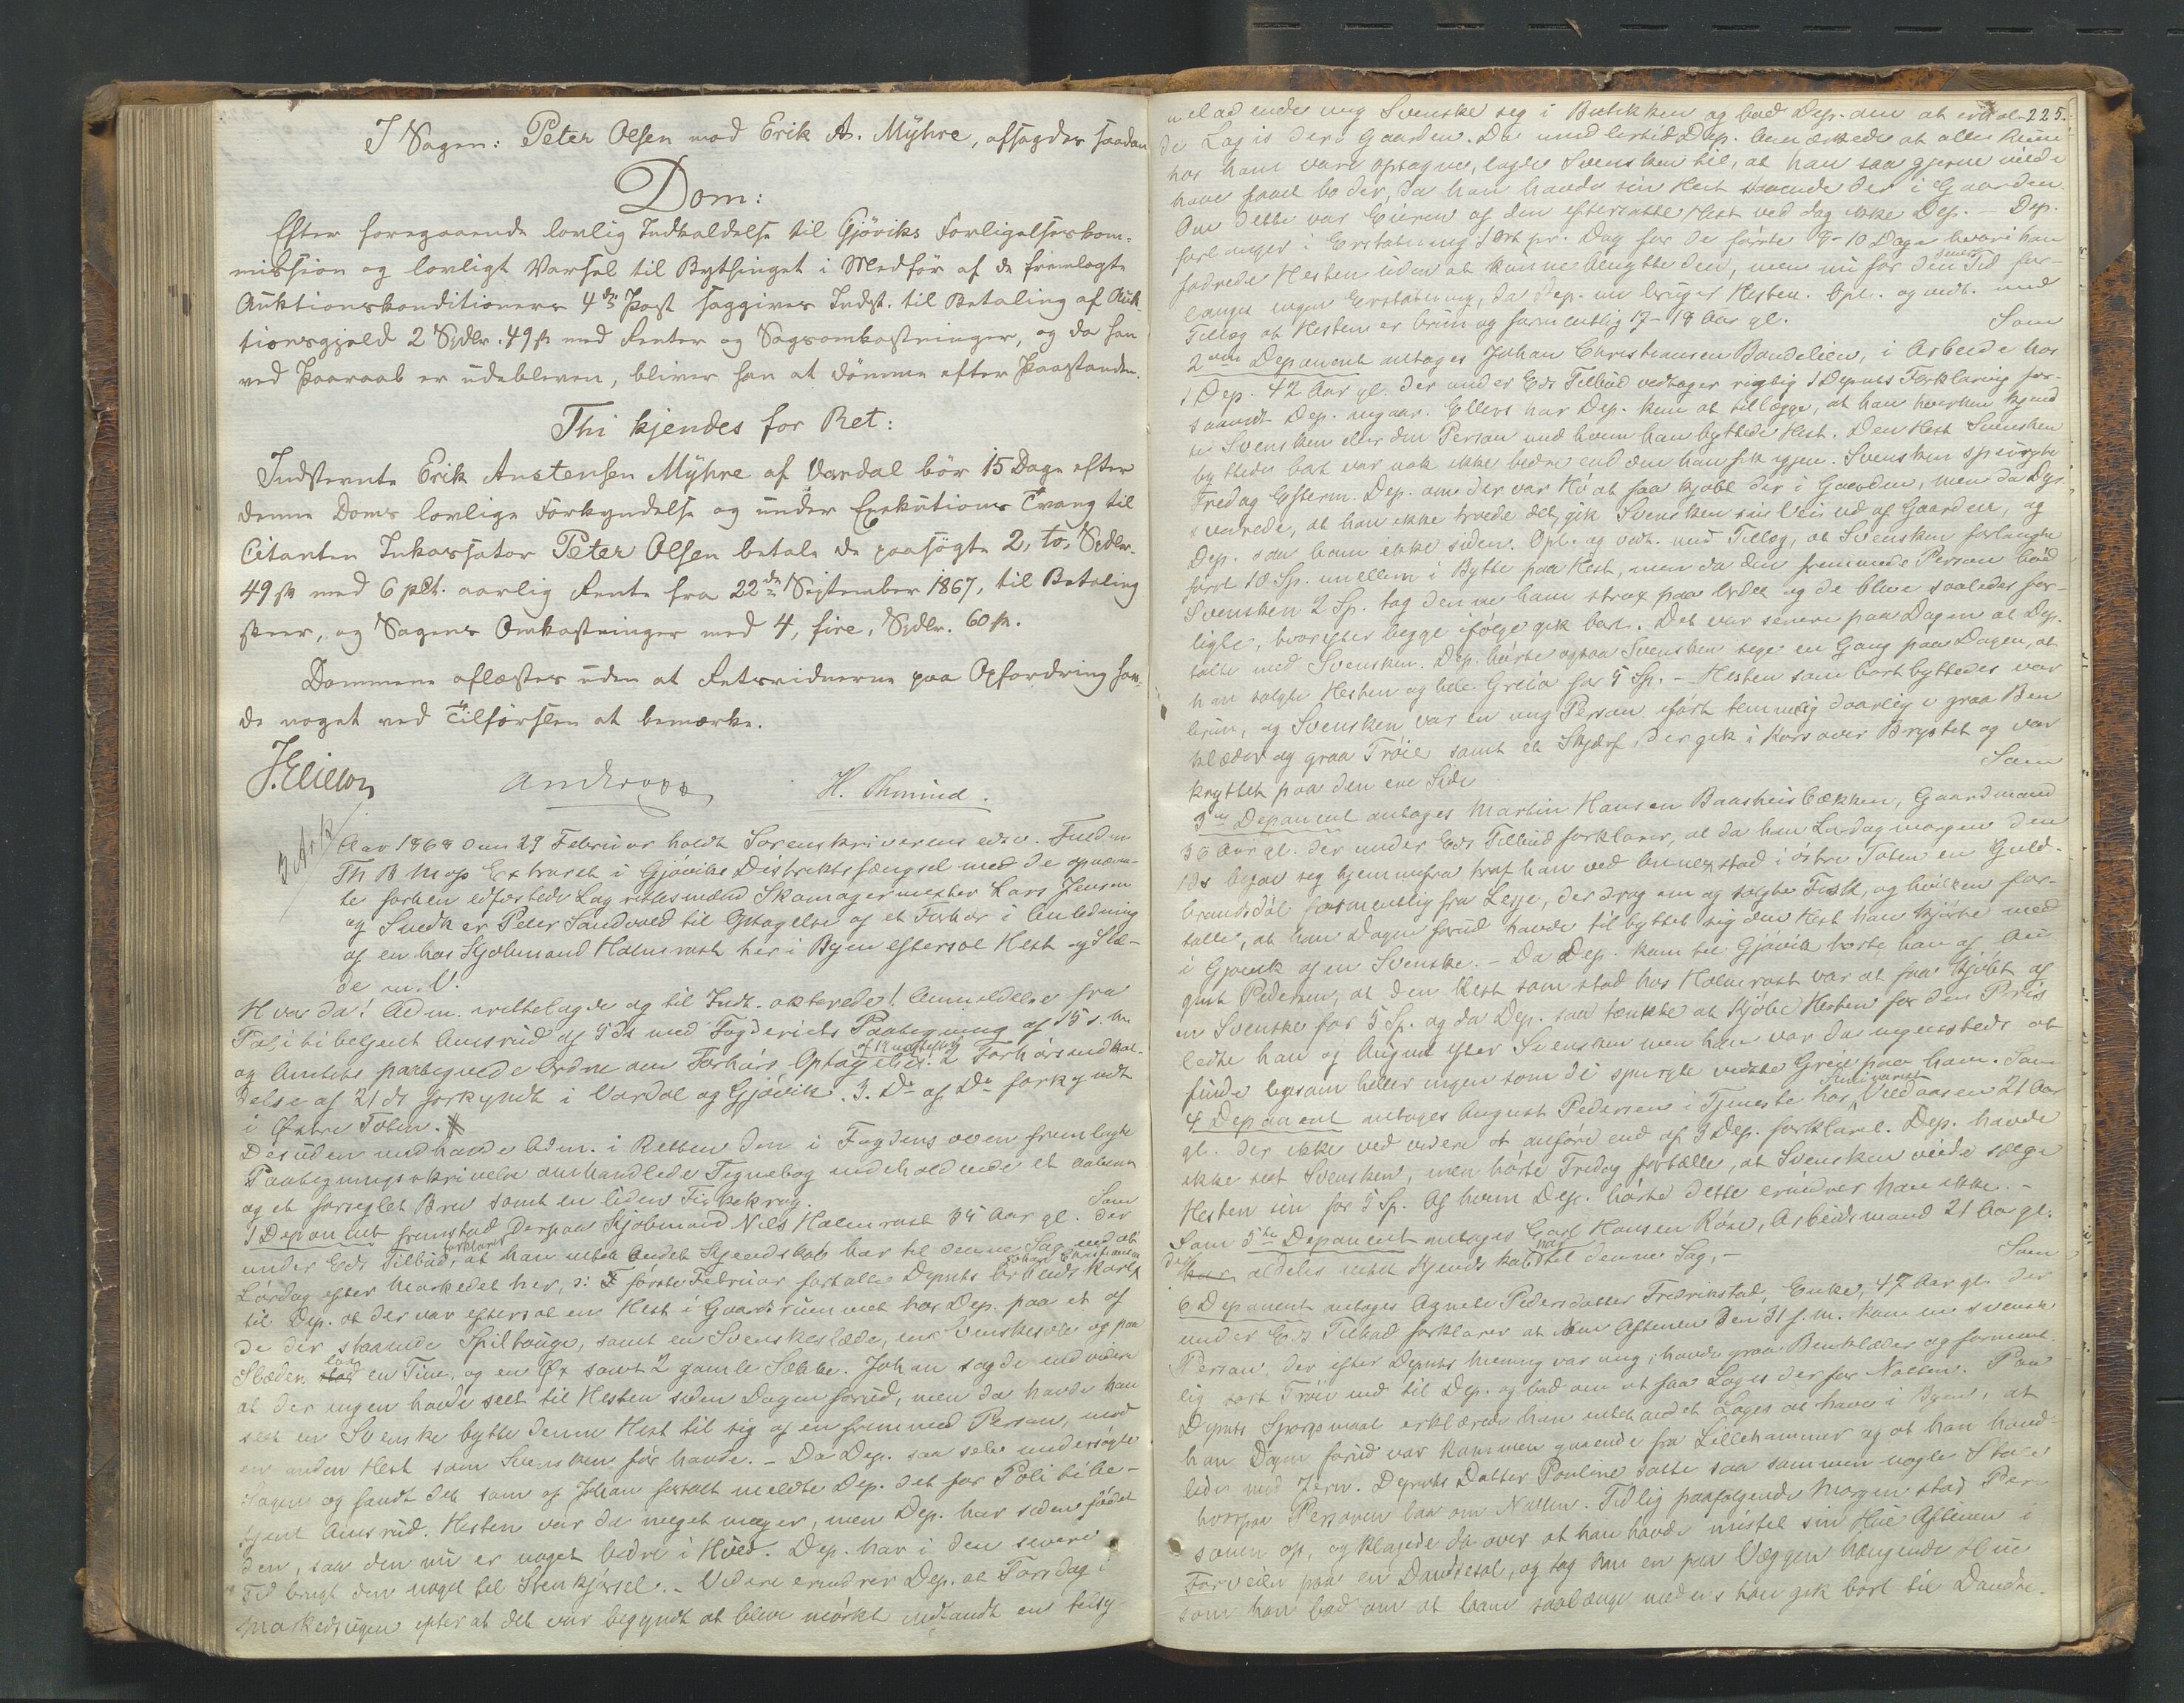 I Sagen: Peter Olsen mod Erik A. Myhre, afsagdes saadan
Dom:
Efter foregaaende lovlig Indkaldelse til Gjöviks Forligelseskom-
mission og lovligt Varsel til Bythinget i Medför af de fremlagte
Auktionskonditioners 4de Post saggives Indst. til Betaling af Auk-
tionsgjæld 2 Spdlr. 49 ß med Renter og Sagsomkostninger, og da han
ved Paaraab er udebleven, bliver han at dömme efter Paastanden.
Thi kjendes for Ret:
Indstevnte Erik Anstensen Myhre af Vardal bör 15 Dage efter
denne Doms lovlige Forkyndelse og under Exekutions Tvang til
Citanten Inkassator Peter Olsen betale de paasögte 2, to, Spdlr.
49 ß med 6 pCt. aarlig Rente fra 22de September 1867, til Betaling
skeer, og Sagens Omkostninger med 4, fire, Spdlr. 60 ß.
Dommen oplæstes uden at Retsvidnerne paa Opfordring hav-
de noget ved Tilförslen at bemærke.
3 Ark
Aar 1868 den 29 Februar holdt Sorenskriverens edsv. Fuldm.
Extraret i Gjöviks Distriktsfængsel med de opnævn-
te forhen edfæstede Lagrettesmænd Skomagermester Lars Jensen
og Snedker Peter Sandvold til Optagelse af et Forhör i Anledning
af en hos Kjöbmand Holmrast her i Byen efterladt Hest og Slæ-
de m. V.
Hvorda! Adm. rettelagde og til Indt. akterede! Anmeldelse fra
Politibetjent Amsrud af 5ds med Fogderiets Paategning af 15 s. M.
og Amtets paategnede Ordre om Forhörs Optagelse af 19 næstefter. 2 Forhörsindkal-
delse af 21 ds forkyndt i Vardal og Gjövik. 3. Do af Do forkyndt
i Østre Toten.
Desuden medhavde Adm. i Retten den i Fogdens oven fremlagte
Paategningsskrivelse omhandlede Tegnebog indeholdende et aabent
og et forseglet Brev samt en liden Fiskekrog. Som
1 Deponent fremstod derpaa Kjöbmand Nils Holmrast 35 Aar gl. der
under Eds Tilbud, forklarer at han intet andet Kjendskab har til denne Sag end at
Lördag efter Markedet her, ɔ: förste Februar fortalte Depnts Arbeidskarl Johan Christiansen
til Dep. at der var efterladt en Hest i Gaardsrummet hos Dep. paa et af
de der staaende Spiltouge, samt en Svenskeslæde, en Svenskesele og paa
Slæden laa en Tine, og en Øx samt 2 gamle Sække. Johan sagde endvidere
at der ingen havde seet til Hesten siden Dagen forud, men da havde han
seet en Svenske bytte denne Hest til sig af en fremmed Person, mod
en anden Hest som Svensken för havde. – Da Dep. saa selv undersögte
Sagen og fandt det som af Johan fortalt meldte Dep. det for Politibe-
tjent Amsrud. Hesten var da meget mager, men Dep. har siden födet
den, saa den nu er noget bedre i Huld. Dep. har i den senere
Tid brugt den noget til Stenkjörsel. – Videre erindrer Dep. at Torsdag i
Markedsugen efter at det var begyndt at blive mörkt indfandt en
225.
ung Svenske sig i Butikken og bad Dep. om at
de Logis der i Gaarden. Da imidlertid Dep. bemærkede at alle Rum
hos ham vare optagne, lagde Svensken til, at han saa gjerne vilde
have faaet bo der, da han havde sin Hest staaende der i Gaarden.
Om dette var Eieren af den efterladte Hest ved dog ikke Dep. – Dep.
forlanger i Erstatning 1 Ort pr. Dag for de förste 9-10 Dage hvori han
fodrede Hesten uden at kunne benytte den, men nu for den senere Tid for-
langes ingen Erstatning, da Dep. nu bruger Hesten. Opl. og vedt. med
Tillæg at Hesten er brun og formentlig 17-18 Aar gl. Som
2den Deponent antages Johan Christiansen Bondelien, i Arbeide hos
1 Dep. 42 Aar gl. der under Eds Tilbud vedtager rigtig 1 Depnts Forklaring for-
saavidt Dep. angaar. Ellers har Dep. kun at tillægge, at han hverken kjend
te Svensken eller den Person med hvem han byttede Hest. Den Hest Svensken
byttede bort var nok ikke bedre end den han fik igjen. Svensken spurgte
Fredag Efterm. Dep. om der var Hö at faa kjöbt der i Gaarden, men da Dep.
svarede, at han ikke troede det, gik Svensken sin Vei ud af Gaarden, og
Dep. saa ham ikke siden. Opl. og vedt. med Tillæg, at Svensken forlangte
först 10 Sp. imellem i Bytte paa Hest, men da den fremmede Person böd
Svensken 2 Sp. tog denne ham strax paa Ordet og de bleve saaledes for-
ligte, hvorefter begge i fölge gik bort. Det var senere paa Dagen at Dep.
talte med Svensken. Dep. hörte ogsaa Svensken sige en Gang paa Dagen, at
han solgte Hesten og hele Greia for 5 Sp. – Hesten som bortbyttedes var
brun, og Svensken var en ung Person iført temmelig daarlig i graa Ben
klæder og graa Tröie samt et Skjærf der gik i Kors over Brystet og var
knyttet paa den ene Side Som
3die Deponent antages Martin Hansen Baasheisbækken, Gaardmand
36 Aar gl. der under Eds Tilbud forklarer, at da han Lördagmorgen den
1ds begav seg hjemmefra traf han ved Annexstad i östre Toten en Guld-
brandsdöl formentlig fra Lesje, der drog om og solgte Fisk, og hvilken for-
talte, at han Dagen forud havde tilbyttet sig den Hest han kjörte med
i Gjövik af en Svenske. – Da Dep. kom til Gjövik hörte han af Au
gust Pedersen, at den Hest som stod hos Holmrast var at faa kjöbt af
en Svenske for 5 Sp. og da Dep. saa tænkte at kjöbe Hesten for den Pris
ledte han og August efter Svensken men han var da ingensteds at
finde ligesom heller ingen som de spurgte vidste Greie paa ham. Som
4 Deponent antages August Pedersen i Tjeneste hos Veldaasen 21 Aar
gl. der ikke ved videre at anföre end af 3 Dep. forklaret. Dep. havde
ikke seet Svensken, men hörte Fredag fortælle, at Svensken vilde sælge
Hesten sin for 5 Sp. Af hvem Dep. hörte dette erindrer han ikke. –
Som 5te Deponent antages Carl Hansen Röse, Arbeidsmand 21 Aar gl.
der aldeles intet Kjendskab har til denne Sag, – Som
6 Deponent antages Agnete Pedersdatter Fredrikstad, Enke, 47 Aar gl. der
under Eds Tilbud forklarer at om Aftenen den 31 f. M. kom en svensk
Person, der efter Depnts Mening var ung, havde graa Benklæder og forment
lig sort Tröie ind til Dep. og bad om at faa Logis der for Natten. Paa
Depnts Spörgsmaal erklærede han intet andet Logis at have i Byen, at
han Dagen forud var kommen gaaende fra Lillehammer og at han hand-
lede med Jern. Depnts Datter Pouline satte saa sammen nogle Stole
hvorpaa Personen laa om Natten. Tidlig paafölgende Morgen stod Per-
sonen op, og klagede da over at han havde mistet sin Hue Aftenen i
Forveien paa en Dandsesal, og tog saa en paa Væggen hængende Hue
som han bad om at laane saalænge medens han gik bort til Dandse-